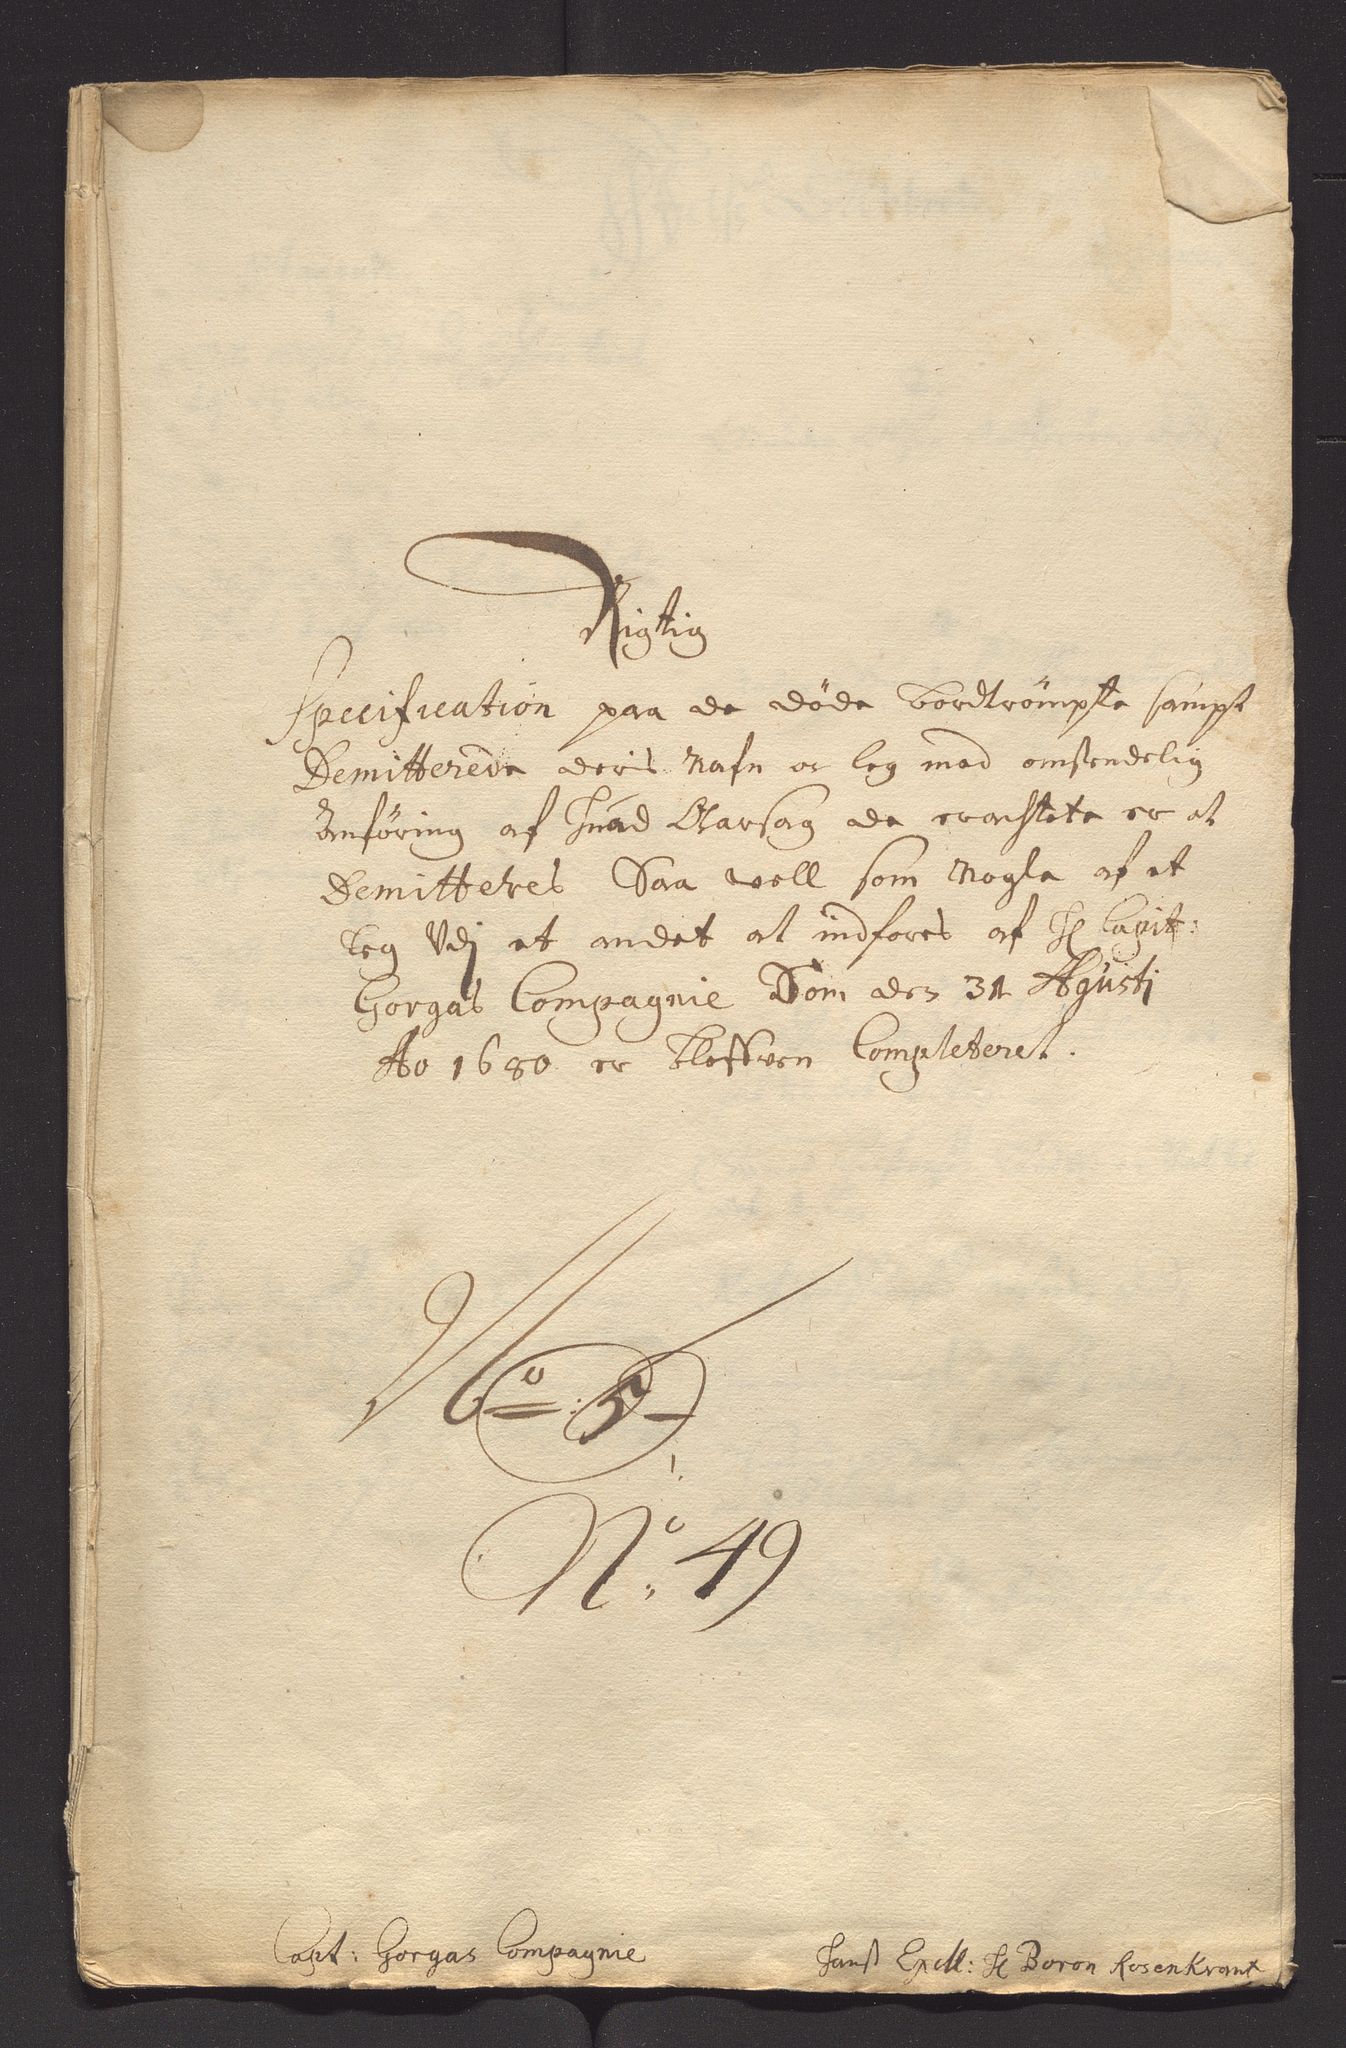 Rigtig
Specification paa de døde bordtrömpte sampt
Demitterede deris Nafn oc leg med omstendelig
Anföring af huad Aarsag de erachtete er at
Demitteres Saa vell som Nogle af et
leg Vdj et andet at indføres af H Capit:
Gorgas Compagnie Som den 31 Agustj
Ao 1680 er bleffven Completeret.
No: 5
No: 49
Capt: Gorgas Compagnie
Hans Excll: H Boron Rosenkrantz